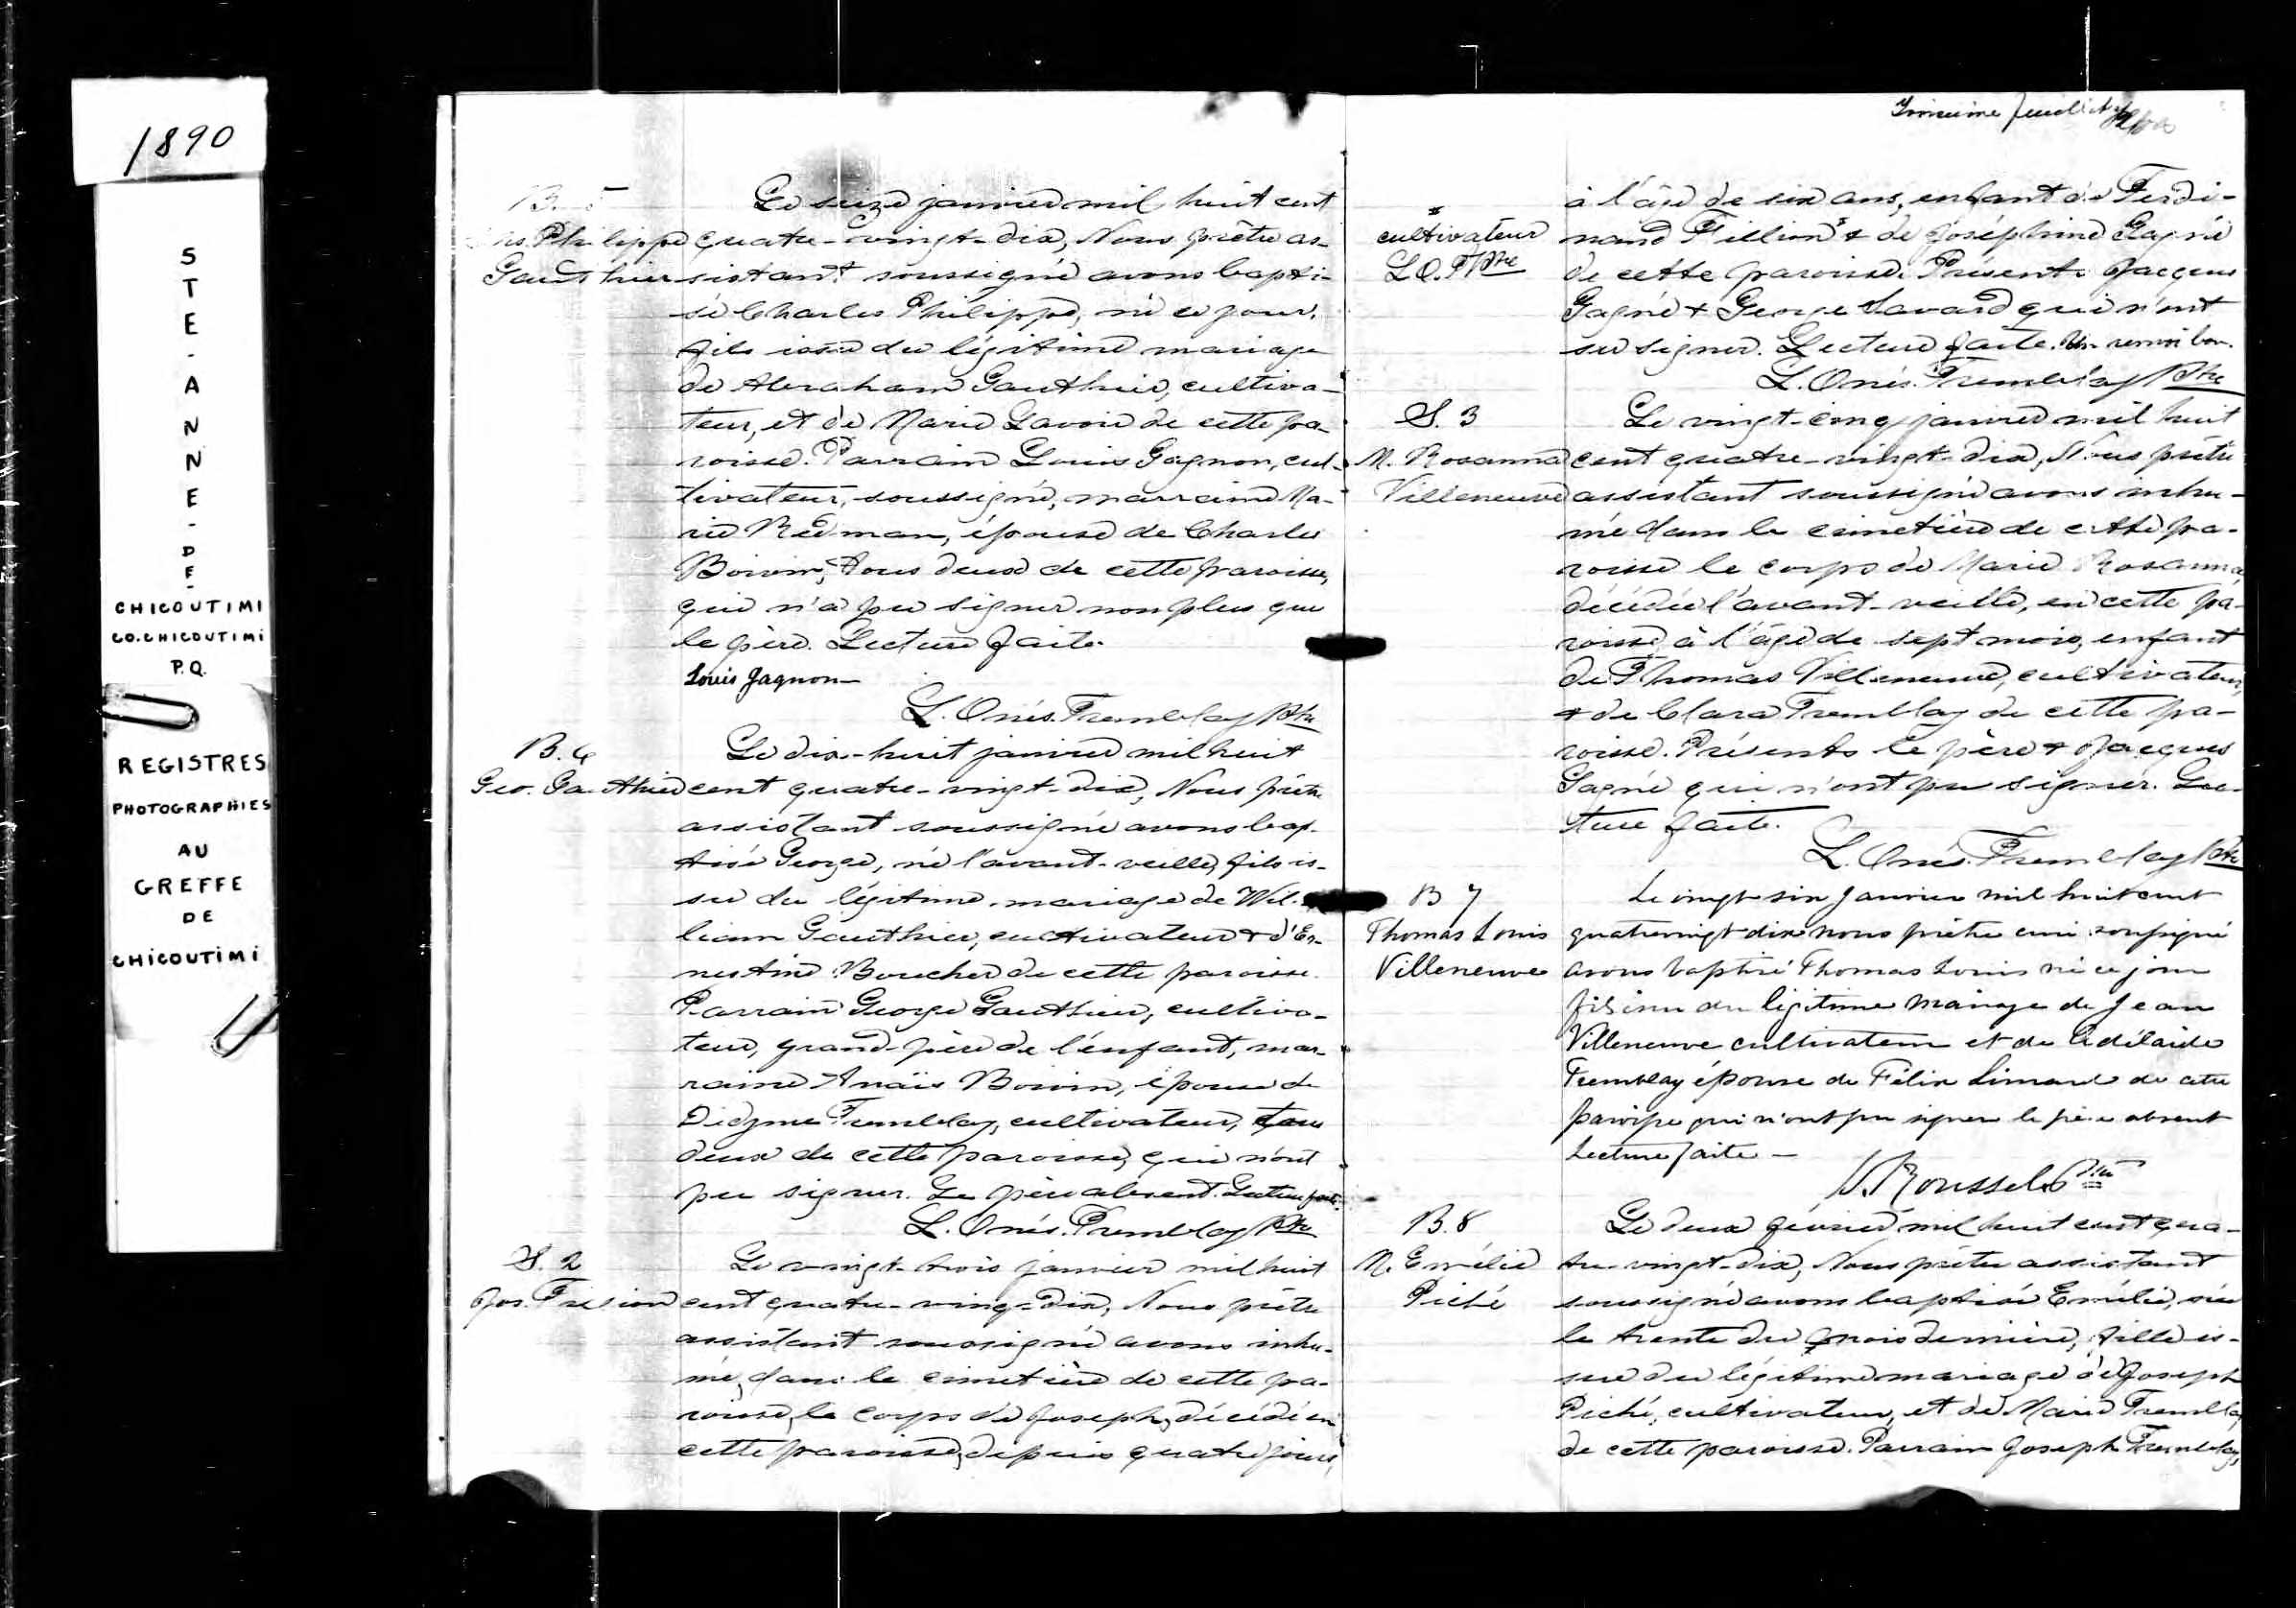 1890
STE-ANNE-DE-
CHICOUTIMI
CO. CHICOUTIMI
P.Q.
REGISTRES
PHOTOGRAPHIES
AU
GREFFE
DE
CHICOUTIMI
B. 5
Chs. Philippe
Gauthier
Le seize janvier mil huit cent
quatre-vingt-dix, Nous prêtre as-
sistant soussigné avons bapti-
sé Charles Philippe, né ce jour,
fils issu du légitime mariage
de Abraham Gauthier, cultiva-
teur, et de Marie Lavoie de cette pa-
roisse. Parrain Louis Gagnon, cul-
tivateur, soussigné, marraine Ma-
rie Redman, épouse de Charles
Boivin, tous deux de cette paroisse,
qui n'a pu signer non plus que
le père. Lecture faite.
Louis Gagnon
L. Onés. Tremblay Ptre
B. 6
Geo. Gauthier
Le dix-huit janvier mil huit
cent quatre-vingt-dix, Nous prêtre
assistant soussigné avons bap-
tisé George, né l'avant-veille, fils is-
su du légitime mariage de Wil-
liam Gauthier, cultivateur & d'Er-
nestine Boucher de cette paroisse.
Parrain George Gauthier, cultiva-
teur, grand-père de l'enfant, mar-
raine Anaïs Boivin, épouse de
Didyme Tremblay, cultivateur, tous
deux de cette paroisse, qui n'ont
pu signer. Le père absent. Lecture faite.
L. Onés. Tremblay Ptre
S. 2
Jos. Fillion
Le vingt-trois janvier mil huit
cent quatre-vingt-dix, Nous prêtre
assistant soussigné avons inhu-
mé, dans le cimetière de cette pa-
roisse, le corps de Joseph, décédé en
cette paroisse, depuis quatre jours,
Troisième feuillet
à l'âge de six ans, enfant de Ferdi-
nand Fillion & de Joséphine Gagné
de cette paroisse. Présents Jacques
Gagné & George Savard qui n'ont
su signer. Lecture faite. Un renvoi bon.
L. Onés. Tremblay Ptre
cultivateur
L.O.T. Ptre
S. 3
M. Rosanna
Villeneuve
Le vingt-cinq janvier mil huit
cent quatre-vingt-dix, Nous prêtre
assistant soussigné avons inhu-
mé dans le cimetière de cette pa-
roisse le corps de Marie Rosanna,
décédée l'avant-veille, en cette pa-
roisse, à l'âge de sept mois, enfant
de Thomas Villeneuve, cultivateur,
& de Clara Tremblay de cette pa-
roisse. Présents le père & Jacques
Gagné qui n'ont pu signer. Lec-
ture faite.
L. Onés. Tremblay Ptre
B 7
Thomas Louis
Villeneuve
Le vingt six janvier mil huit cent
quatrevingt dix nous prêtre curé soussigné
avons baptisé Thomas Louis né ce jour
fils issu du légitime mariage de Jean
Villeneuve cultivateur et de Adélaïde
Tremblay épouse de Félix Simard de cette
paroisse qui n'ont pu signer le père absent
Lecture faite —
Roussel Ptre
B. 8
M. Emélie
Piché
Le deux février mil huit cent qua-
tre-vingt-dix, Nous prêtre assistant
soussigné avons baptisé Emélie, née
le trente du mois dernier, fille is-
sue du légitime mariage de Joseph
Piché, cultivateur, et de Marie Tremblay
de cette paroisse. Parrain Joseph Tremblay,